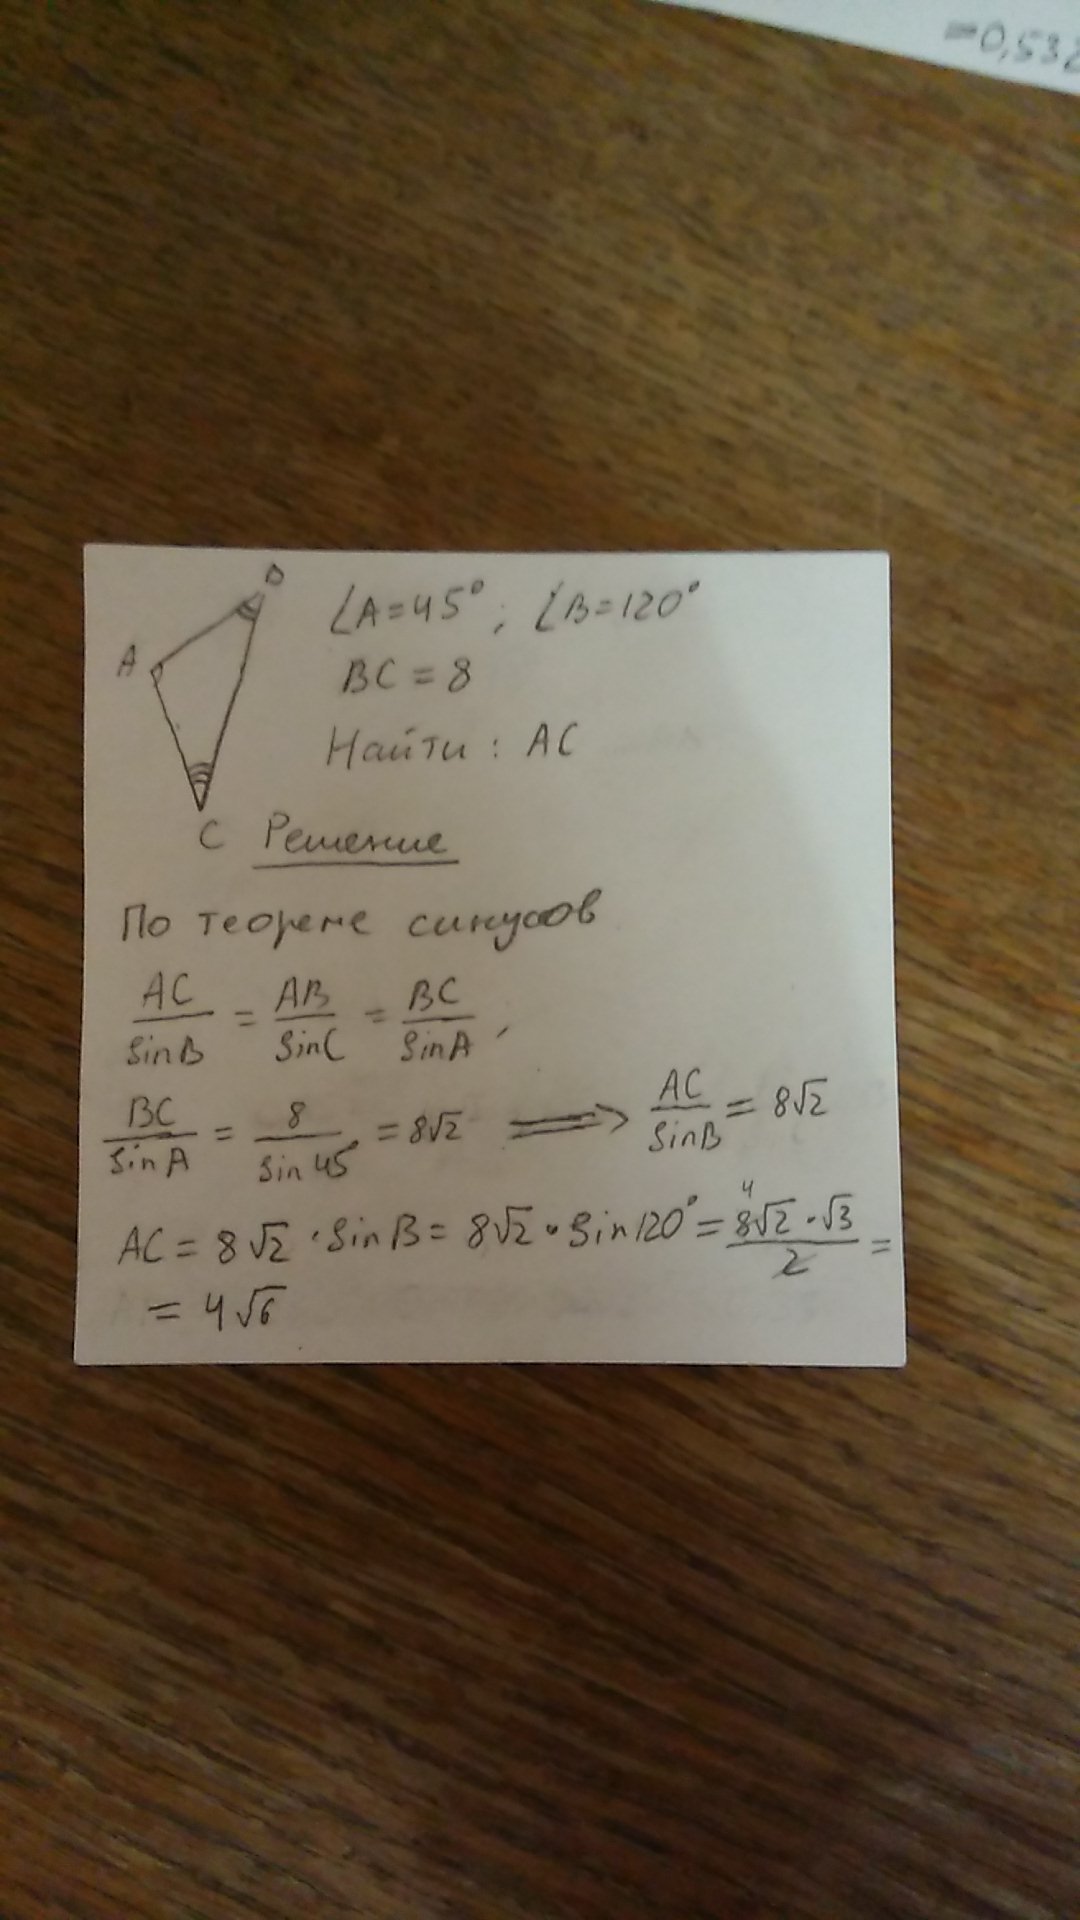 =0,532
B
∠A=45°; ∠B=120°
A
BC = 8
Найти: AC
C Решение
По теореме синусов
AC/sinB = AB/SinC = BC/sinA,
BC/sinA = 8/sin 45° = 8√2 ⟹ AC/sinB = 8√2
AC = 8√2 · sinB = 8√2 · sin120° = 4 8√2·√3/2 =
= 4√6